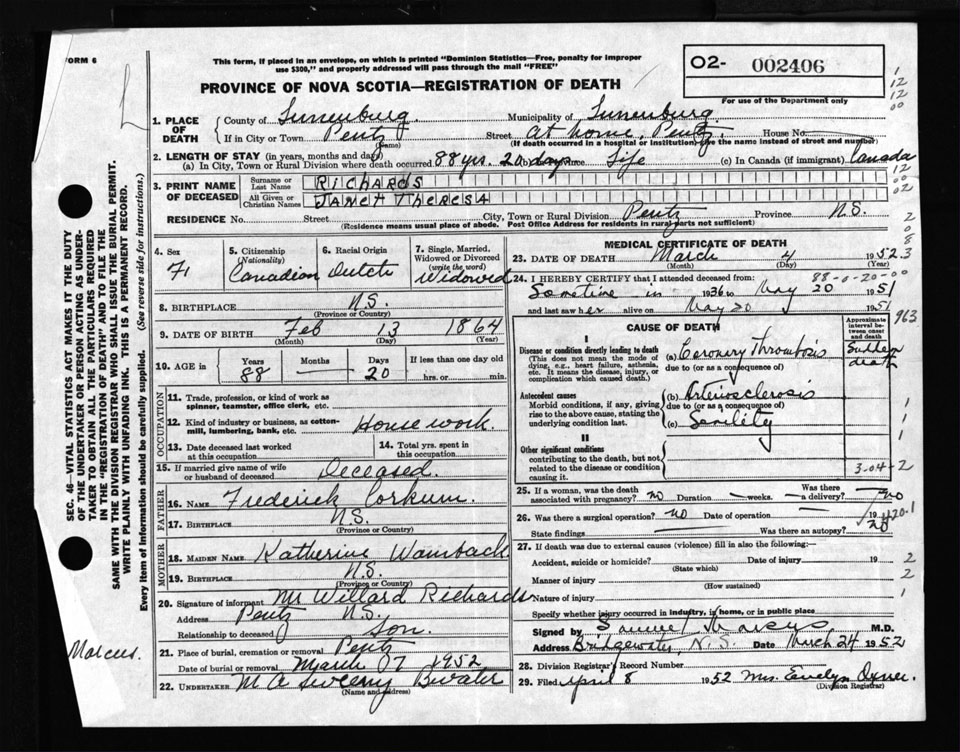 FORM 6
This form, if placed in an envelope, on which is printed "Dominion Statistics—Free, penalty for improper
use $300," and properly addressed will pass through the mail "FREE"
O2- 002406
For use of the Department only
PROVINCE OF NOVA SCOTIA—REGISTRATION OF DEATH
1. PLACE OF DEATH
County of Lunenburg. Municipality of Lunenburg.
If in City or Town Pentz (Name) Street At home, Pentz. House No.
(If death occurred in a hospital or institution, give the name instead of street and number)
2. LENGTH OF STAY (in years, months and days)
(a) In City, Town or Rural Division where death occurred 88 yrs. 20 days Life (c) In Canada (if immigrant) Canada
3. PRINT NAME OF DECEASED
Surname or Last Name RICHARDS
All Given or Christian Names JANET THERESA
RESIDENCE No. Street City, Town or Rural Division Pentz Province N.S.
(Residence means usual place of abode. Post Office Address for residents in rural parts not sufficient)
4. Sex F
5. Citizenship (Nationality) Canadian
6. Racial Origin Dutch
7. Single, Married, Widowed or Divorced (write the word) Widowed
8. BIRTHPLACE N.S.
(Province or Country)
9. DATE OF BIRTH Feb 13 1864
(Month) (Day) (Year)
10. AGE in Years 88 Months — Days 20 If less than one day old hrs. or min.
OCCUPATION
11. Trade, profession, or kind of work as spinner, teamster, office clerk, etc.
12. Kind of industry or business, as cotton-mill, lumbering, bank, etc. Housework.
13. Date deceased last worked at this occupation
14. Total yrs. spent in this occupation
15. If married give name of wife or husband of deceased Deceased.
FATHER
16. NAME Frederick Corkum.
17. BIRTHPLACE N.S.
(Province or Country)
MOTHER
18. MAIDEN NAME Katherine Wamback
19. BIRTHPLACE N.S.
(Province or Country)
20. Signature of informant Mr Willard Richards
Address Pentz N.S.
Relationship to deceased Son.
21. Place of burial, cremation or removal Pentz
Date of burial or removal March 07 1952
22. UNDERTAKER M A Sweeny Bwater
(Name and address)
MEDICAL CERTIFICATE OF DEATH
23. DATE OF DEATH March 4 1952
(Month) (Day) (Year)
88-0-20-00
24. I HEREBY CERTIFY that I attended deceased from:
Sometime in 1936 to May 20 1951
and last saw her alive on May 20 1951
963
CAUSE OF DEATH
Approximate interval between onset and death
I
Disease or condition directly leading to death (a) Coronary Thrombosis Sudden death
(This does not mean the mode of dying, e.g., heart failure, asthenia, etc. It means the disease, injury, or complication which caused death.)
due to (or as a consequence of)
Antecedent causes (b) Arteriosclerosis
Morbid conditions, if any, giving rise to the above cause, stating the underlying condition last.
due to (or as a consequence of)
(c) Senility
II
Other significant conditions
contributing to the death, but not related to the disease or condition causing it.
3-04-2
25. If a woman, was the death associated with pregnancy? no Duration — weeks. Was there a delivery? no
26. Was there a surgical operation? no Date of operation — 19
420-1
State findings Was there an autopsy? no
27. If death was due to external causes (violence) fill in also the following:
Accident, suicide or homicide? Date of injury 19
(State which)
Manner of injury
(How sustained)
Nature of injury
Specify whether injury occurred in industry, in home, or in public place
Signed by Samuel Marcus M.D.
Address Bridgewater, N.S. Date March 24 1952
28. Division Registrar's Record Number
29. Filed April 8 1952 Mrs. Evelyn Oxner.
(Division Registrar)
SEC. 46—VITAL STATISTICS ACT MAKES IT THE DUTY
OF THE UNDERTAKER OR PERSON ACTING AS UNDER-
TAKER TO OBTAIN ALL THE PARTICULARS REQUIRED
IN THE "REGISTRATION OF DEATH" AND TO FILE THE
SAME WITH THE DIVISION REGISTRAR WHO SHALL ISSUE THE BURIAL PERMIT.
WRITE PLAINLY WITH UNFADING INK. THIS IS A PERMANENT RECORD.
Every item of Information should be carefully supplied. (See reverse side for instructions.)
Marcus.